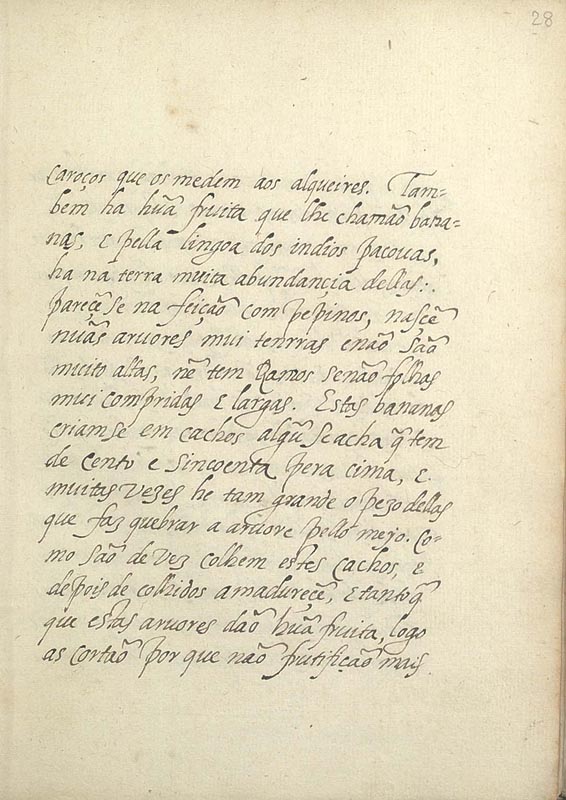 28
caroços que os medem aos alqueires. Tam=
bem ha hũa fruita que lhe chamão bana=
nas, E pella lingoa dos indios pacouas,
ha na terra muita abundançia dellas:.
pareçẽse na feição com pepinos, nasçẽ
nũas aruores mui tenrras e não são
muito altas, nẽ tem Ramos senão folhas
mui compridas E largas. Estas bananas
criamse em cachos algũ se acha q̃ tem
de cento e sincoenta pera cima, E
muitas vezes he tam grande o pezo dellas
que faz quebrar a aruore pello mejo. Co=
mo são de vez colhem estes cachos, e
depois de colhidos amadureçẽ, E tanto q̃
que estas aruores dão hũa fruita, logo
as cortão por que não frutifição mais